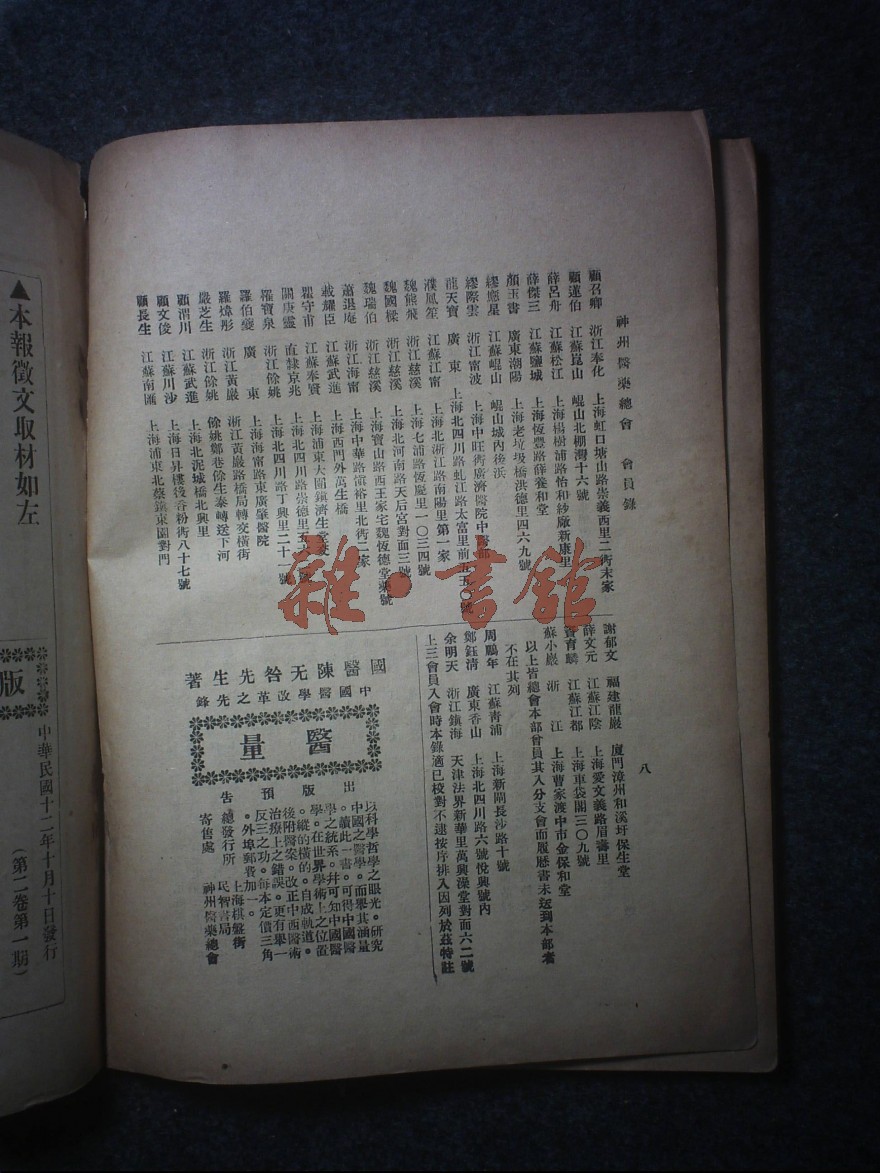 神州醫藥總會 會員錄
八
顧召卿 浙江奉化 上海虹口塘山路崇義西里二衖末家
顧蓮伯 江蘇崑山 崐山北棚灣十六號
薛呂舟 江蘇松江 上海楊樹浦路怡和紗廠新康里
薛傑三 江蘇鹽城 上海恆豐路薛養和堂
顏玉書 廣東潮陽 上海老垃圾橋洪德里四六九號
繆應星 江蘇崐山 崐山城內後浜
繆際雲 浙江寧波 上海中旺街廣濟醫院中醫部
龍天寶 廣東 上海北四川路虬江路太富里前五五〇號
濮鳳笙 江蘇江甯 上海北浙江路南陽里第一家
魏熊飛 浙江慈溪 上海七浦路恆慶里一〇三四號
魏國樑 浙江慈溪 上海北河南路天后宮對面三號
魏瑞伯 浙江慈溪 上海寶山路西王家宅魏恆德堂藥號
蕭退庵 浙江海甯 上海中華路愼裕里北衖二家
戴耀臣 江蘇武進 上海西門外萬生橋
瞿守甫 江蘇奉賢 上海浦東大團鎮濟生堂
關庚靈 直隸京兆 上海北四川路崇德里五 號
羅寶泉 浙江餘姚 上海北四川路丁興里二十一號
羅伯夔 廣東 上海海甯路東廣肇醫院
羅煒彤 浙江黃巖 浙江黃巖路橋局轉交橫街
嚴芝生 浙江餘姚 餘姚鄒巷餘生泰轉送下河
顧渭川 江蘇武進 上海北泥城橋北興里
顧文俊 江蘇川沙 上海日昇樓後香粉衖八十七號
顧長生 江蘇南匯 上海浦東北蔡鎮東園對門
謝郁文 福建龍巖 廈門漳州和溪圩保生堂
薛文元 江蘇江陰 上海愛文義路眉壽里
竇育麟 江蘇江都 上海車袋閣三〇九號
蘇小巖 浙江 上海曹家渡中市金保和堂
以上皆總會本部會員其入分支會而履歷書未送到本部者
不在其列
周鵬年 江蘇青浦 上海新閘長沙路十號
鄭鈺清 廣東香山 上海北四川路六號悅興號內
余明天 浙江鎮海 天津法界新華里萬興澡堂對面六二號
上三會員入會時本錄適已校對不逮按序排入因列於茲特註
國醫陳无咎先生著
中國醫學改革之先鋒
醫量
出版預告
以科學哲學之眼光。研究
中國之醫學。而舉其涵量
。讀此一書。可得中國醫
學之統系。幷可知中國醫
學。在世界學術上之位置
。縱的橫的。自成軌道。
後附醫案。改正中西醫術
治療上之錯誤。更有舉一
反三之功。每本定價三角
。外埠郵費加一。
總發行所 上海棋盤街 民智書局
寄售處 神州醫藥總會
▲本報徵文取材如左
版
中華民國十二年十月十日發行
(第二卷第一期)
雜·書館